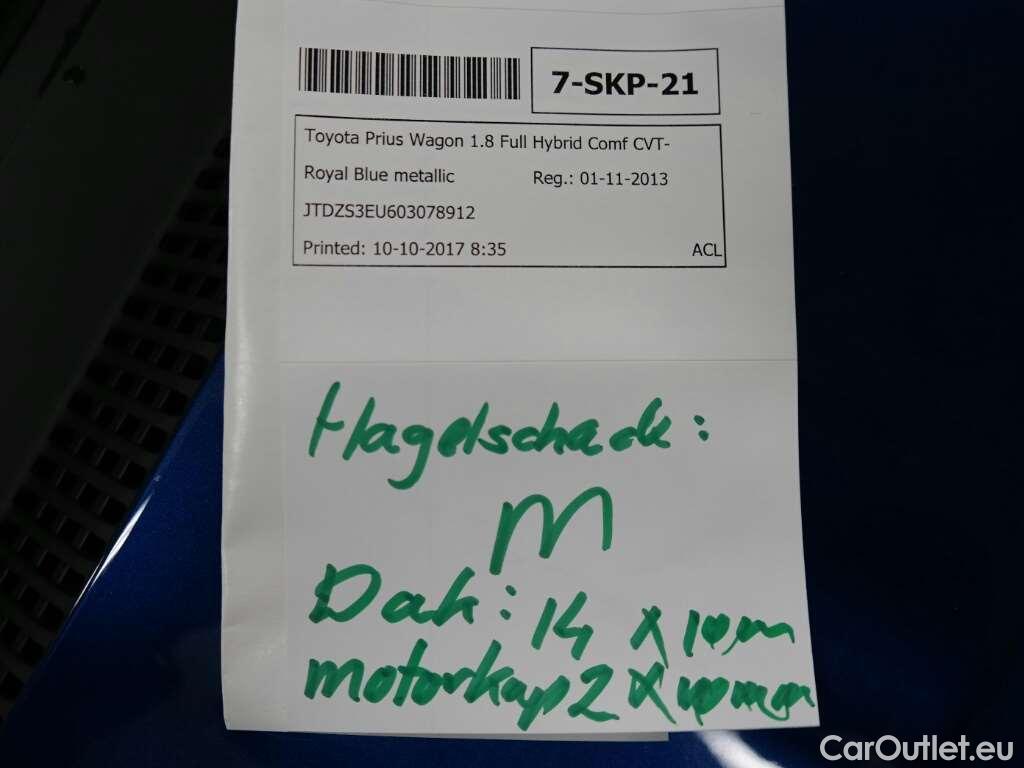 7-SKP-21
Toyota Prius Wagon 1.8 Full Hybrid Comf CVT-
Royal Blue metallic Reg.: 01-11-2013
JTDZS3EU603078912
Printed: 10-10-2017 8:35 ACL
Hagelschade:
M
Dak: 14 x 10m
motorkap 2 x 10mm
CarOutlet.eu